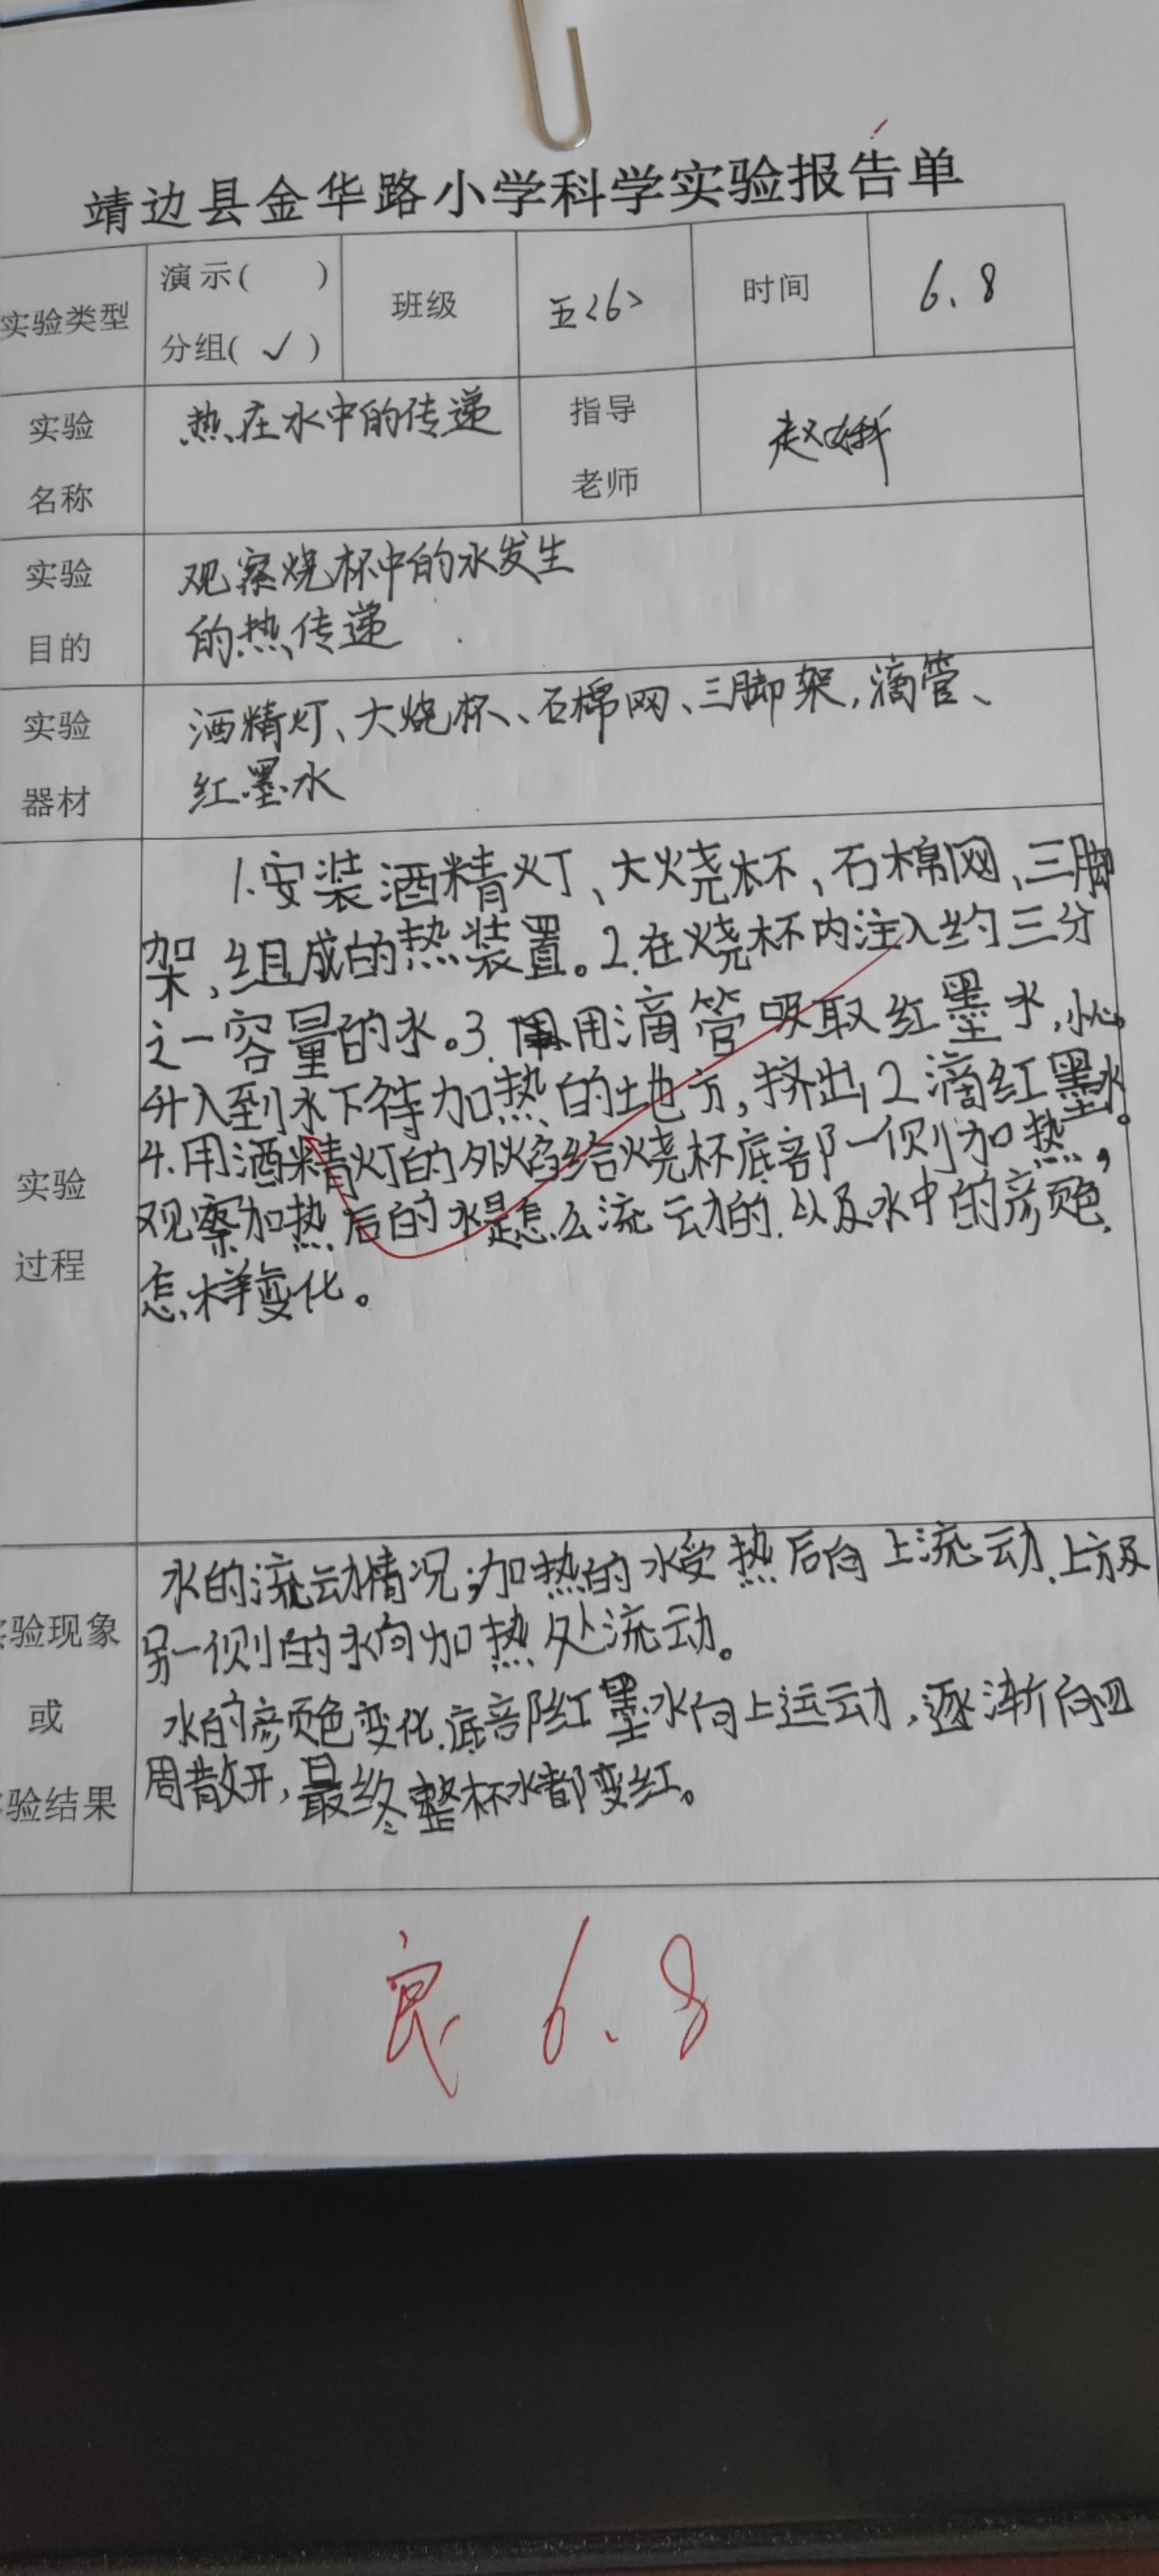 靖边县金华路小学科学实验报告单
实验类型
演示( )
分组( ✓ )
班级
五<6>
时间
6.8
实验
名称
热在水中的传递
指导
老师
赵
实验
目的
观察烧杯中的水发生
的热传递
实验
器材
酒精灯、大烧杯、石棉网、三脚架,滴管、
红墨水
实验
过程
1.安装酒精灯、大烧杯、石棉网、三脚
架,组成的热装置。2.在烧杯内注入约三分
之一容量的水。3.用滴管吸取红墨水,小心
升入到水下待加热的地方,挤出12滴红墨水。
4.用酒精灯的外焰给烧杯底部一侧加热,
观察加热后的水是怎么流动的.以及水中的颜色.
怎样变化。
验现象
或
验结果
水的流动情况;加热的水受热后向上流动.上方及
另一侧的水向加热处流动。
水的颜色变化.底部红墨水向上运动,逐渐向四
周散开,最终整杯水都变红。
良 6.8